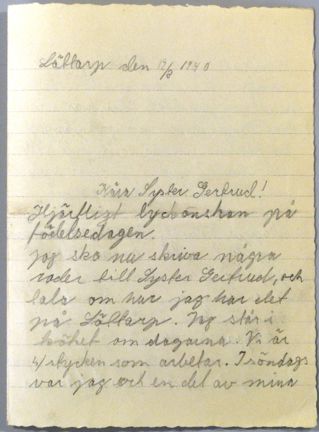 Löttarp den 13/3 1940
Kära Syster Gertrud!
Hjärtligt lyckönskan på
födelsedagen.
Jag ska nu skriva några
rader till Syster Gertrud, och
tala om hur jag har det
på Löttarp. Jag står i
köket om dagarna. Vi är
4 stycken som arbetar. I söndags
var jag och en del av mina